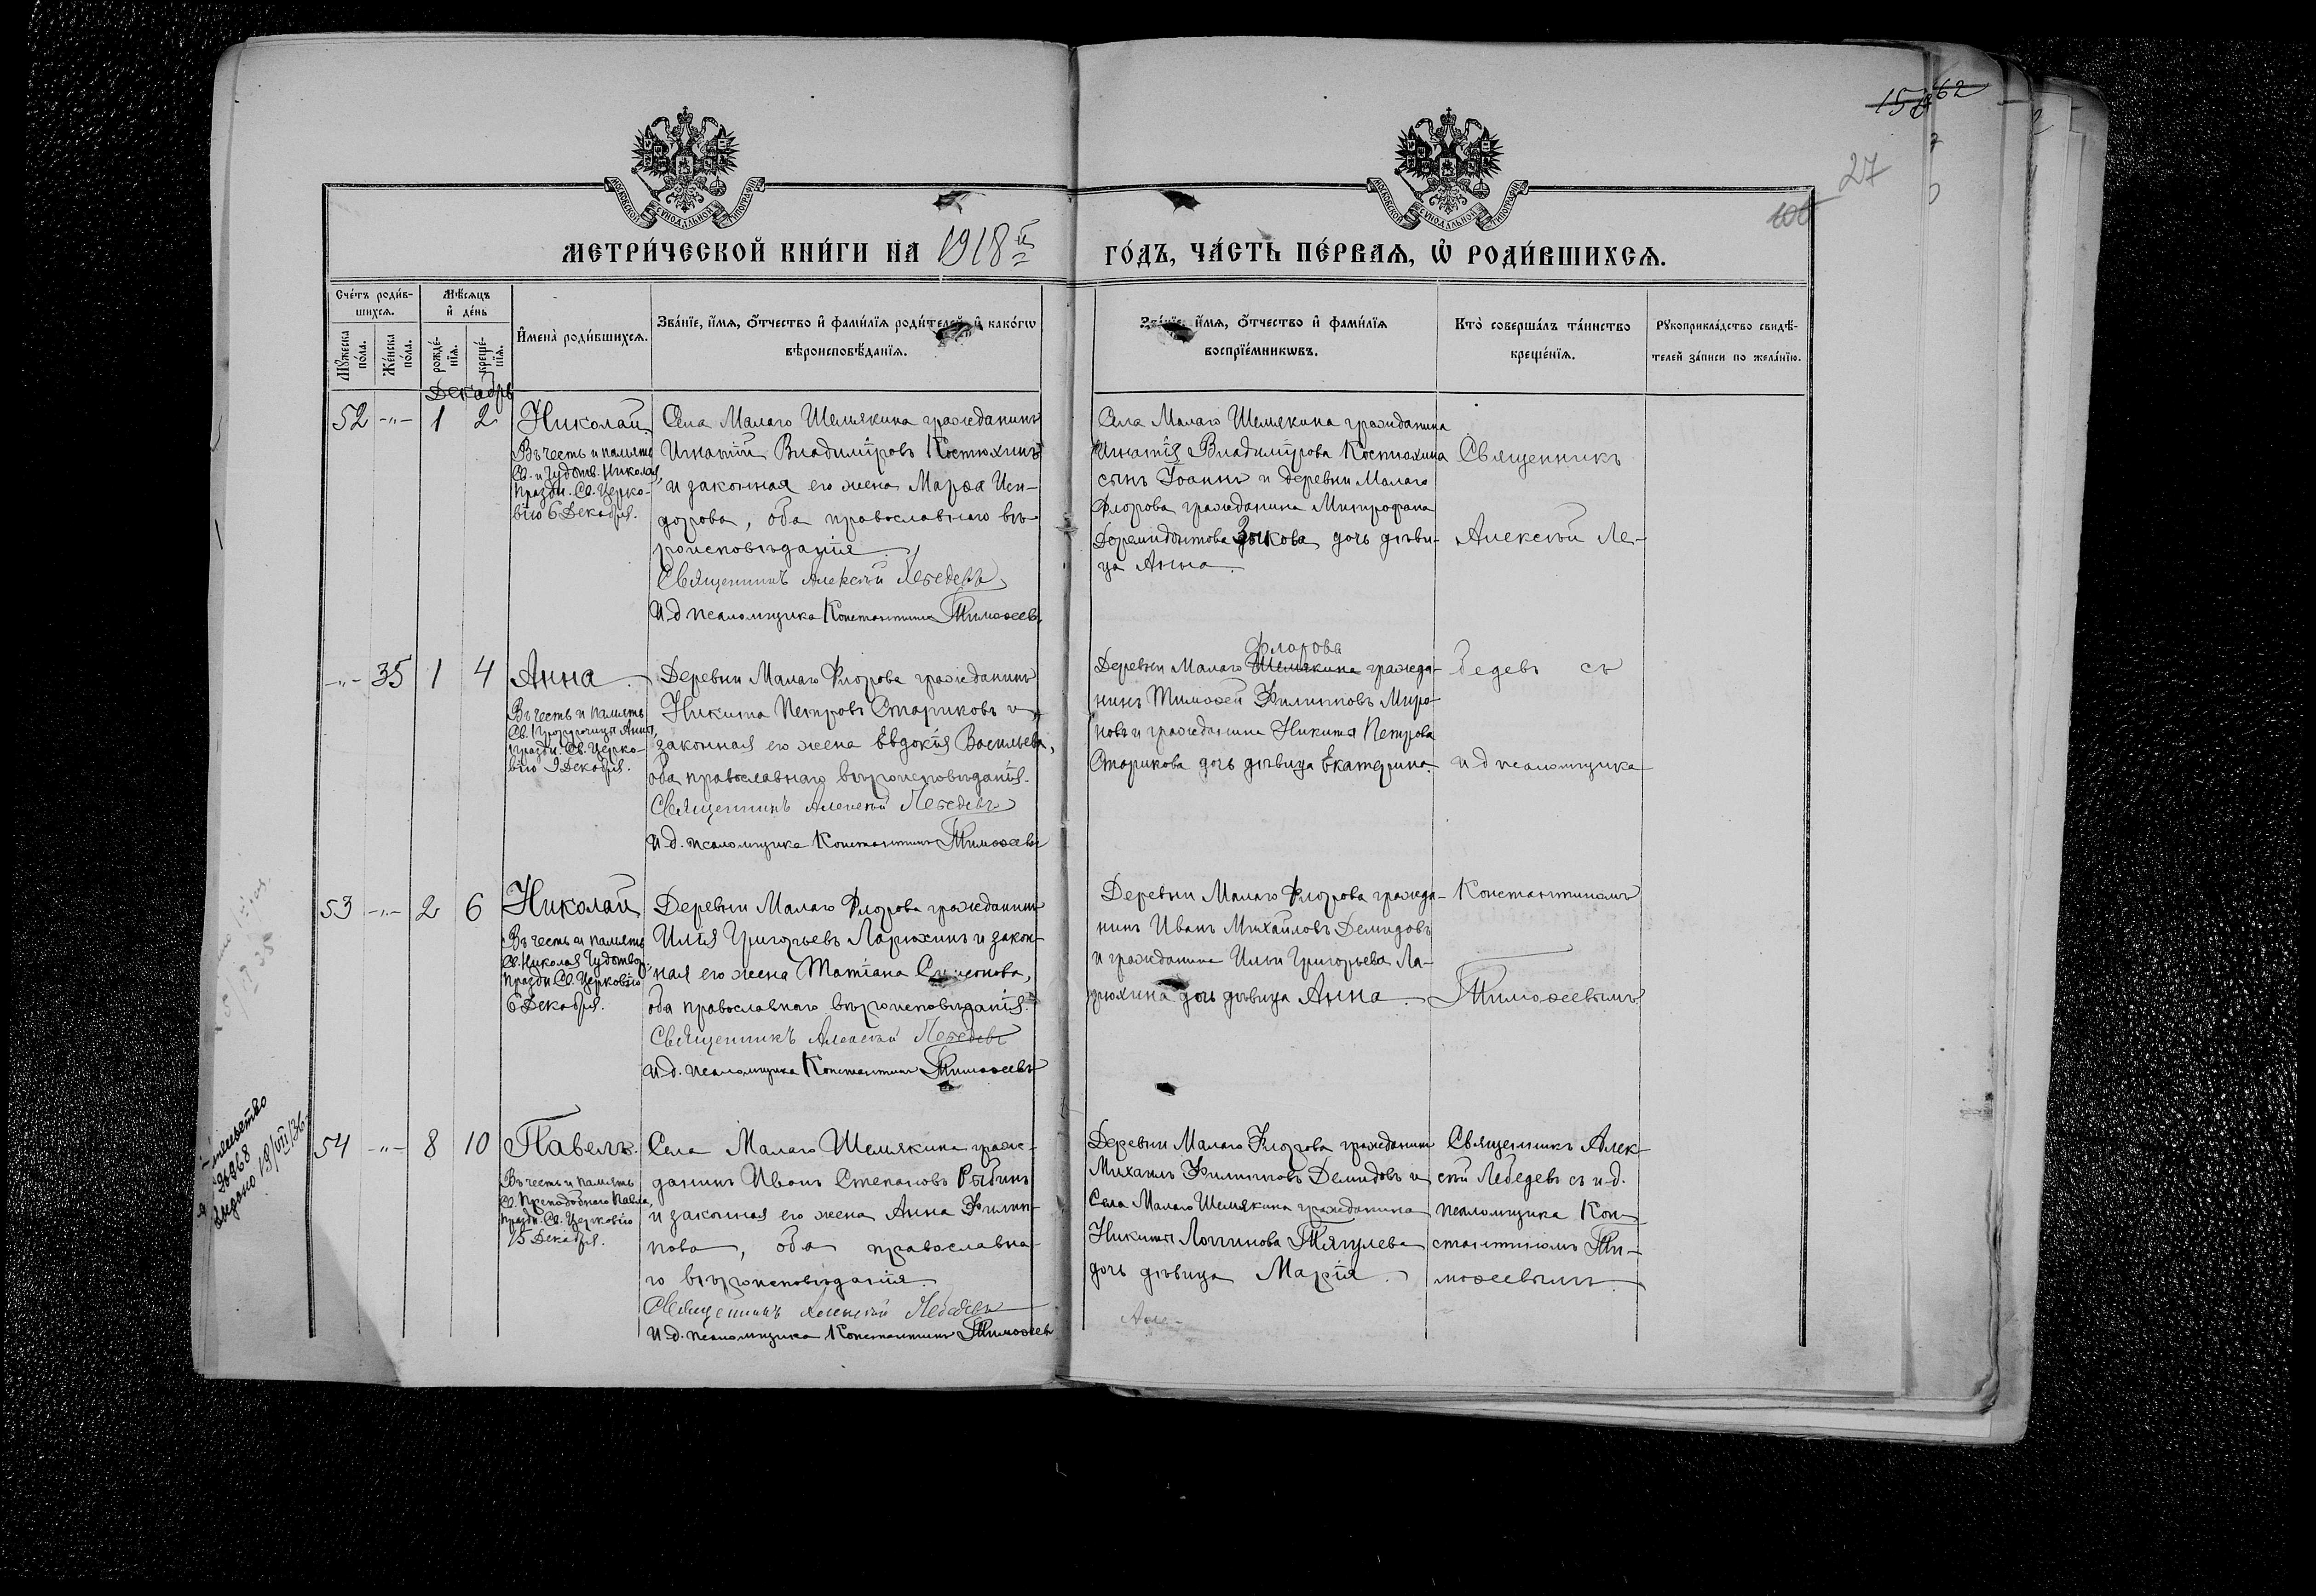 15862
27
100
МОСКОВСКОЙ СѴНОДАЛЬНОЙ ТИПОГРАФІИ
МОСКОВСКОЙ СѴНОДАЛЬНОЙ ТИПОГРАФІИ
МЕТРИ́ЧЕСКОЙ КНИ́ГИ НА 1918й ГО́ДЪ, ЧА́СТЬ ПЕ́РВАѦ, Ѡ РОДИ́ВШИХСѦ.
Сче́тъ роди́в-
шихсѧ.
Мꙋжеска по́ла.
Же́нска по́ла.
Мѣ́сѧцъ
и҆ де́нь
рожде́-
нїѧ.
креще́-
нїѧ.
И҆мена̀ роди́вшихсѧ.
Зва́нїе, и҆́мѧ, ѻ҆́тчество и҆ фами́лїѧ роди́телей, и҆ како́гѡ
вѣроисповѣ́данїѧ.
Зва́нїе, и҆́мѧ, ѻ҆́тчество и҆ фами́лїѧ
воспрїе́мникѡвъ.
Кто̀ соверша́лъ та́инство
креще́нїѧ.
Рꙋкоприкла́дство свидѣ́-
телей за́писи по жела́нїю.
Декабрь
52 -"- 1 2 Николай.
Въ честь и память
Св. и Чудотв. Николая,
праздн. Св. Церко-
вію 6 Декабря.
Села Малаго Шемякина гражданинъ
Игнатій Владиміровъ Костюхинъ
и законная его жена Марѳа Иси-
дорова, оба православнаго вѣ-
роисповѣданія.
Священникъ Алексѣй Лебедевъ
И д псаломщика Константинъ Тимоѳеевъ
Села Малаго Шемякина гражданина
Игнатія Владимірова Костюхина
сынъ Іоаннъ и деревни Малаго
Флорова гражданина Митрофана
Доримедонтова Зыкова дочь дѣви-
ца Анна.
Священникъ
Алексѣй Ле-
-"- 35 1 4 Анна.
Въ честь и память
Св. Пророчицы Анны,
праздн. Св. Церко-
вію 9 Декабря.
Деревни Малаго Флорова гражданинъ
Никита Петровъ Стариковъ и
законная его жена Евдокія Васильева,
оба православнаго вѣроисповѣданія.
Священникъ Алексѣй Лебедевъ
И д. псаломщика Константинъ Тимоѳеевъ
Флорова
Деревни Малаго Шемякина гражда-
нинъ Тимоѳей Филипповъ Миро-
новъ и гражданина Никиты Петрова
Старикова дочь дѣвица Екатерина.
бедевъ съ
и д псаломщика
53 -"- 2 6 Николай
Въ честь и память
Св. Николая Чудотвор.
праздн. Св. Церковію
6 Декабря.
Деревни Малаго Флорова гражданинъ
Илія Григорьевъ Ларюхинъ и закон-
ная его жена Татіана Симеонова,
оба православнаго вѣроисповѣданія.
Священникъ Алексѣй Лебедевъ
И д. псаломщика Константинъ Тимоѳеевъ
Деревни Малаго Флорова гражда-
нинъ Иванъ Михайловъ Демидовъ
и гражданина Ильи Григорьева Ла-
рюхина дочь дѣвица Анна.
Константиномъ
Тимоѳеевымъ
54 -"- 8 10 Павелъ.
Въ честь и память
Св. Преподобнаго Павла,
праздн. Св. Церковію
15 Декабря.
Села Малаго Шемякина граж-
данинъ Иванъ Степановъ Рыбинъ
и законная его жена Анна Филип-
пова, оба православна-
го вѣроисповѣданія.
Священникъ Алексѣй Лебедевъ
И д. псаломщика Константинъ Тимоѳеевъ
Деревни Малаго Флорова гражданинъ
Михаилъ Филипповъ Демидовъ и
Села Малаго Шемякина гражданина
Никиты Логгинова Тягулева
дочь дѣвица Марія.
Священникъ Алек-
сѣй Лебедевъ съ и д.
псаломщика Кон-
стантиномъ Ти-
моѳеевымъ
Але-
выдано 19/VII/36